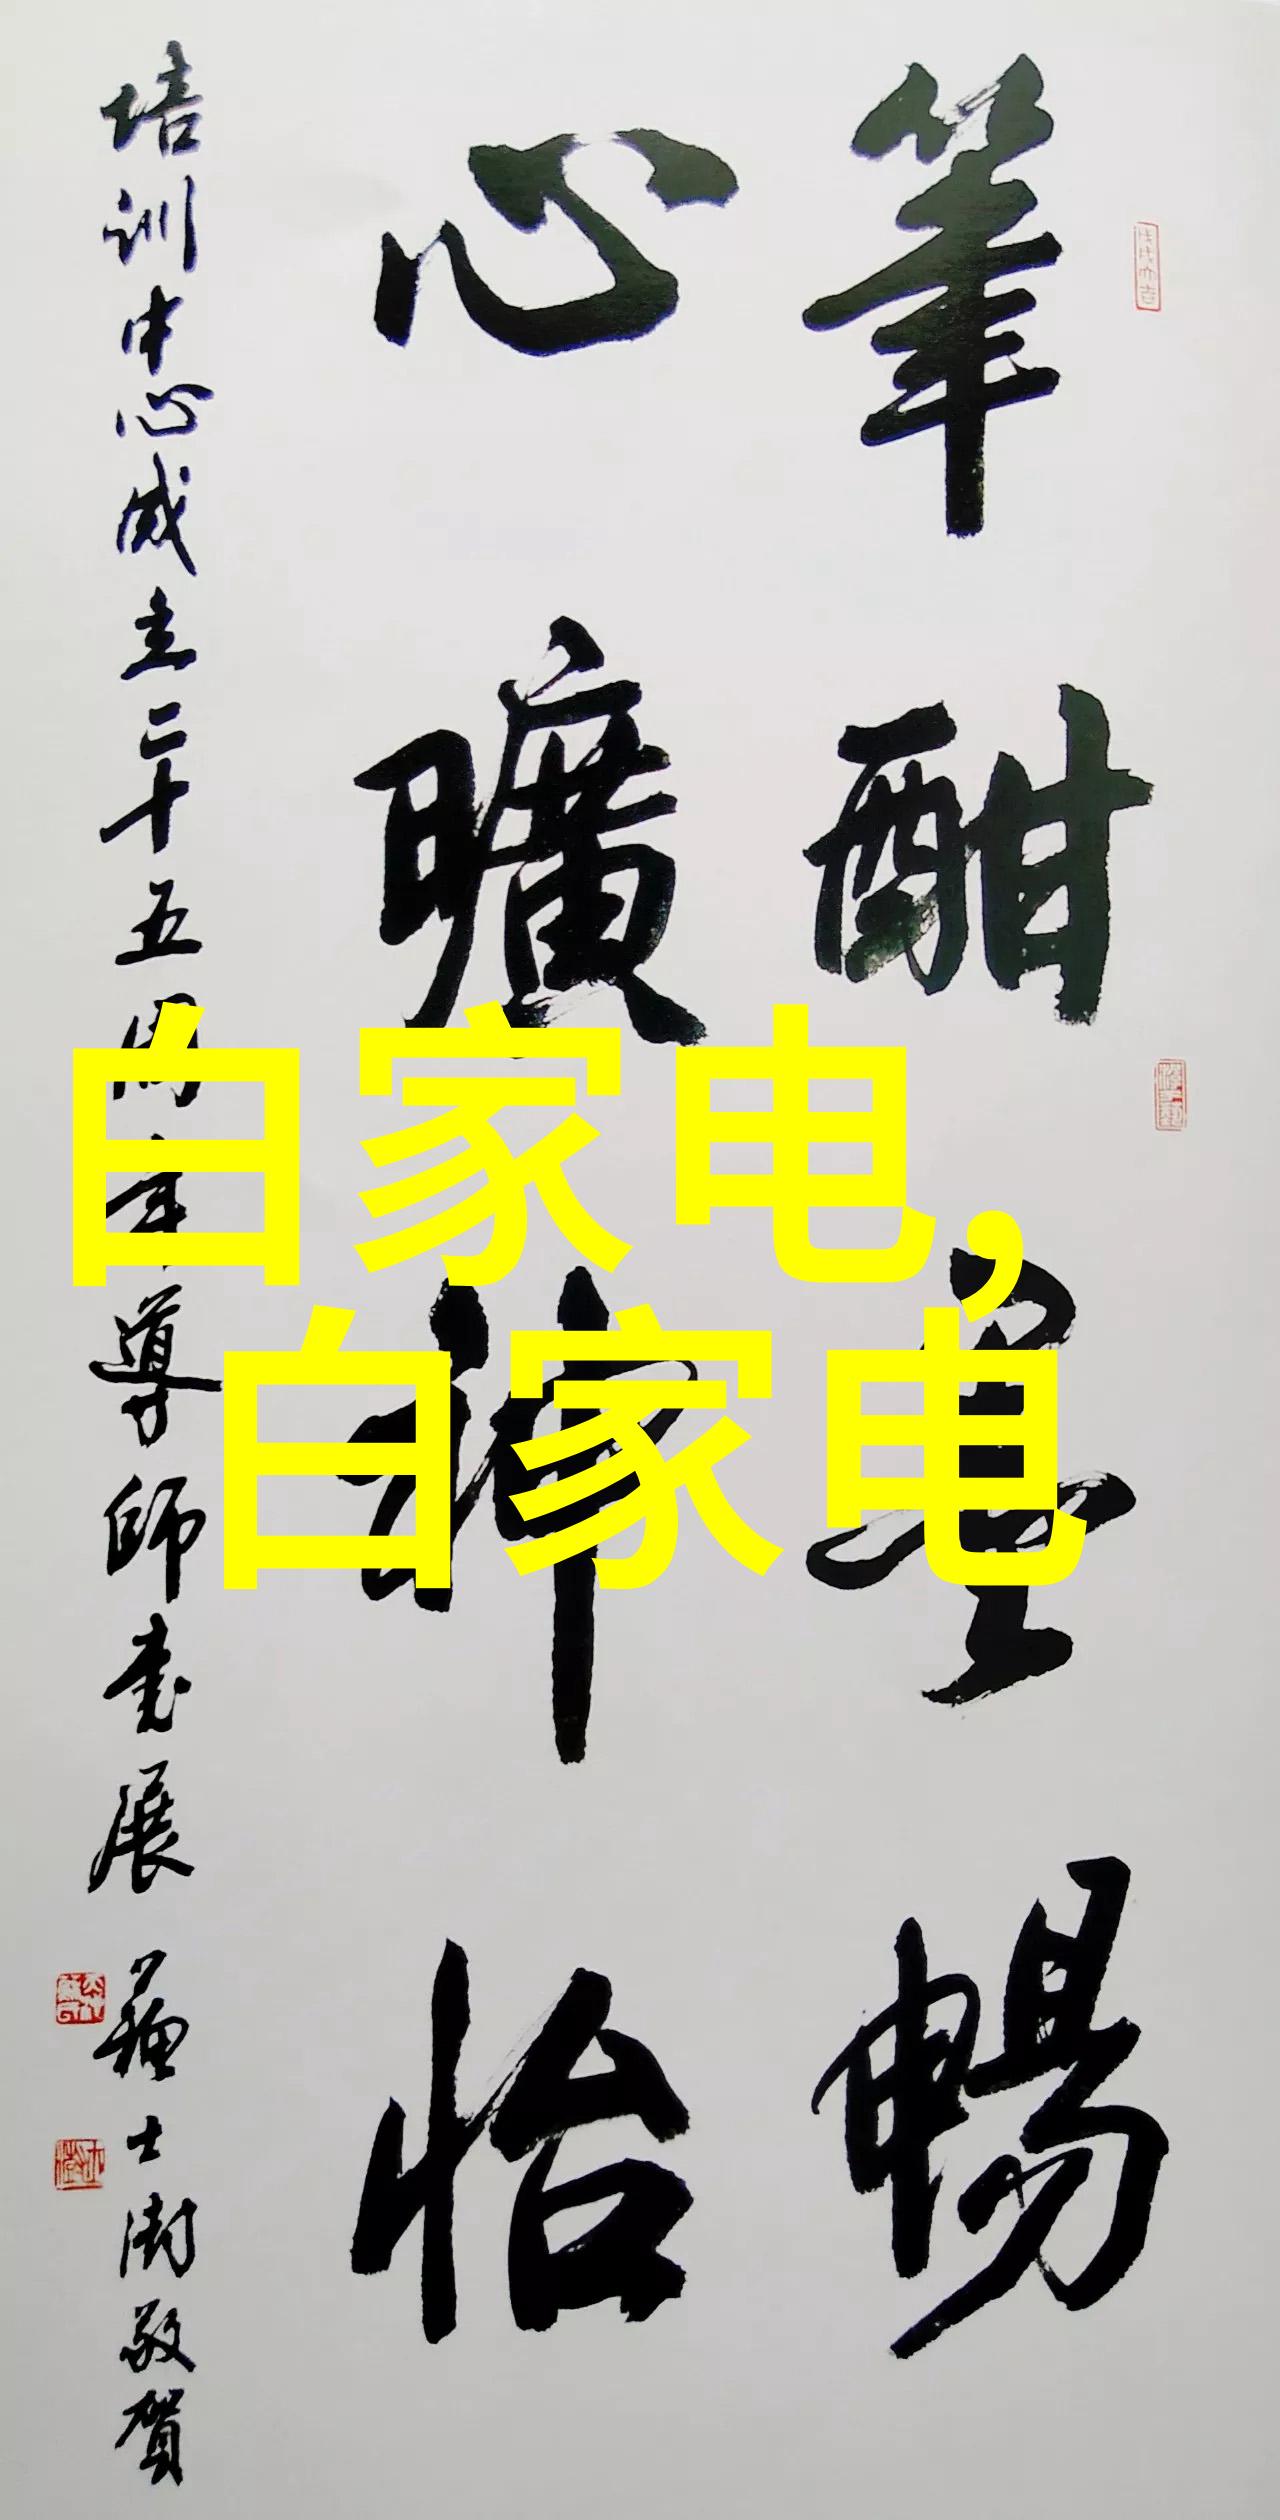 筆酣墨暢
心曠神怡
培训中心成立二十五周年導師书展
苏士澍敬賀
白家电,
白家电